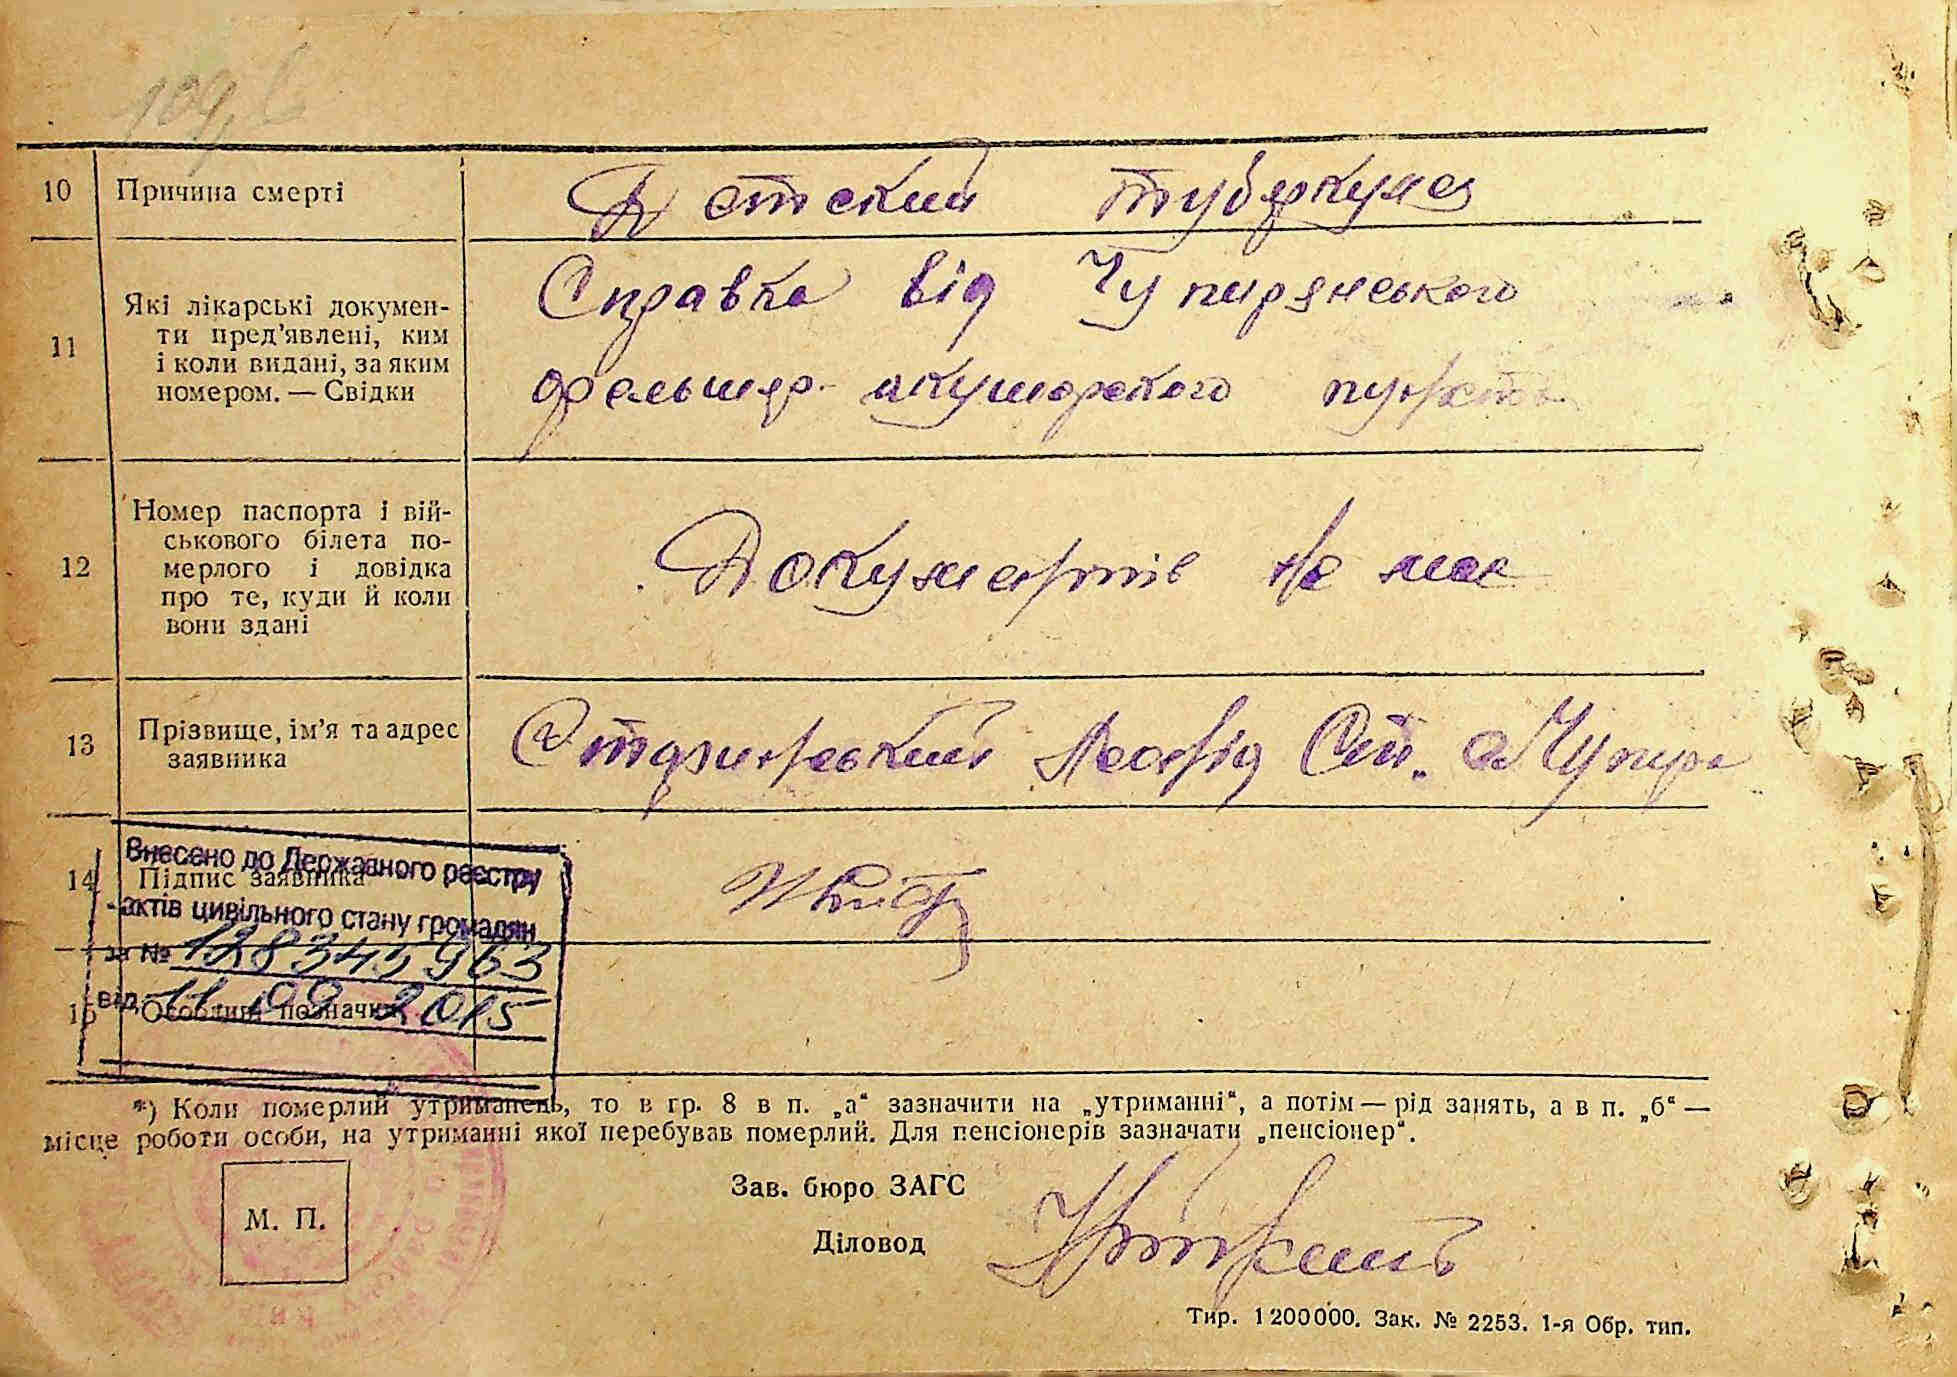 10 Причина смерті Детский туберкулез
11 Які лікарські докумен-
ти пред'явлені, ким
і коли видані, за яким
номером. — Свідки
Справка від Чупирянського
фельшер-акушерского пункта
12 Номер паспорта і вій-
ськового білета по-
мерлого і довідка
про те, куди й коли
вони здані
Документів не має
13 Прізвище, ім'я та адрес
заявника
Стариньский Леонід Сит. с Чупира
14 Підпис заявника
Внесено до Державного реєстру
актів цивільного стану громадян
за № 128345963
від 11 09 2015
15 Особливі позначки
*) Коли померлий утриманець, то в гр. 8 в п. „а“ зазначити на „утриманні“, а потім — рід занять, а в п. „б“ —
місце роботи особи, на утриманні якої перебував померлий. Для пенсіонерів зазначати „пенсіонер“.
М. П.
Зав. бюро ЗАГС
Діловод
Тир. 1200000. Зак. № 2253. 1-я Обр. тип.